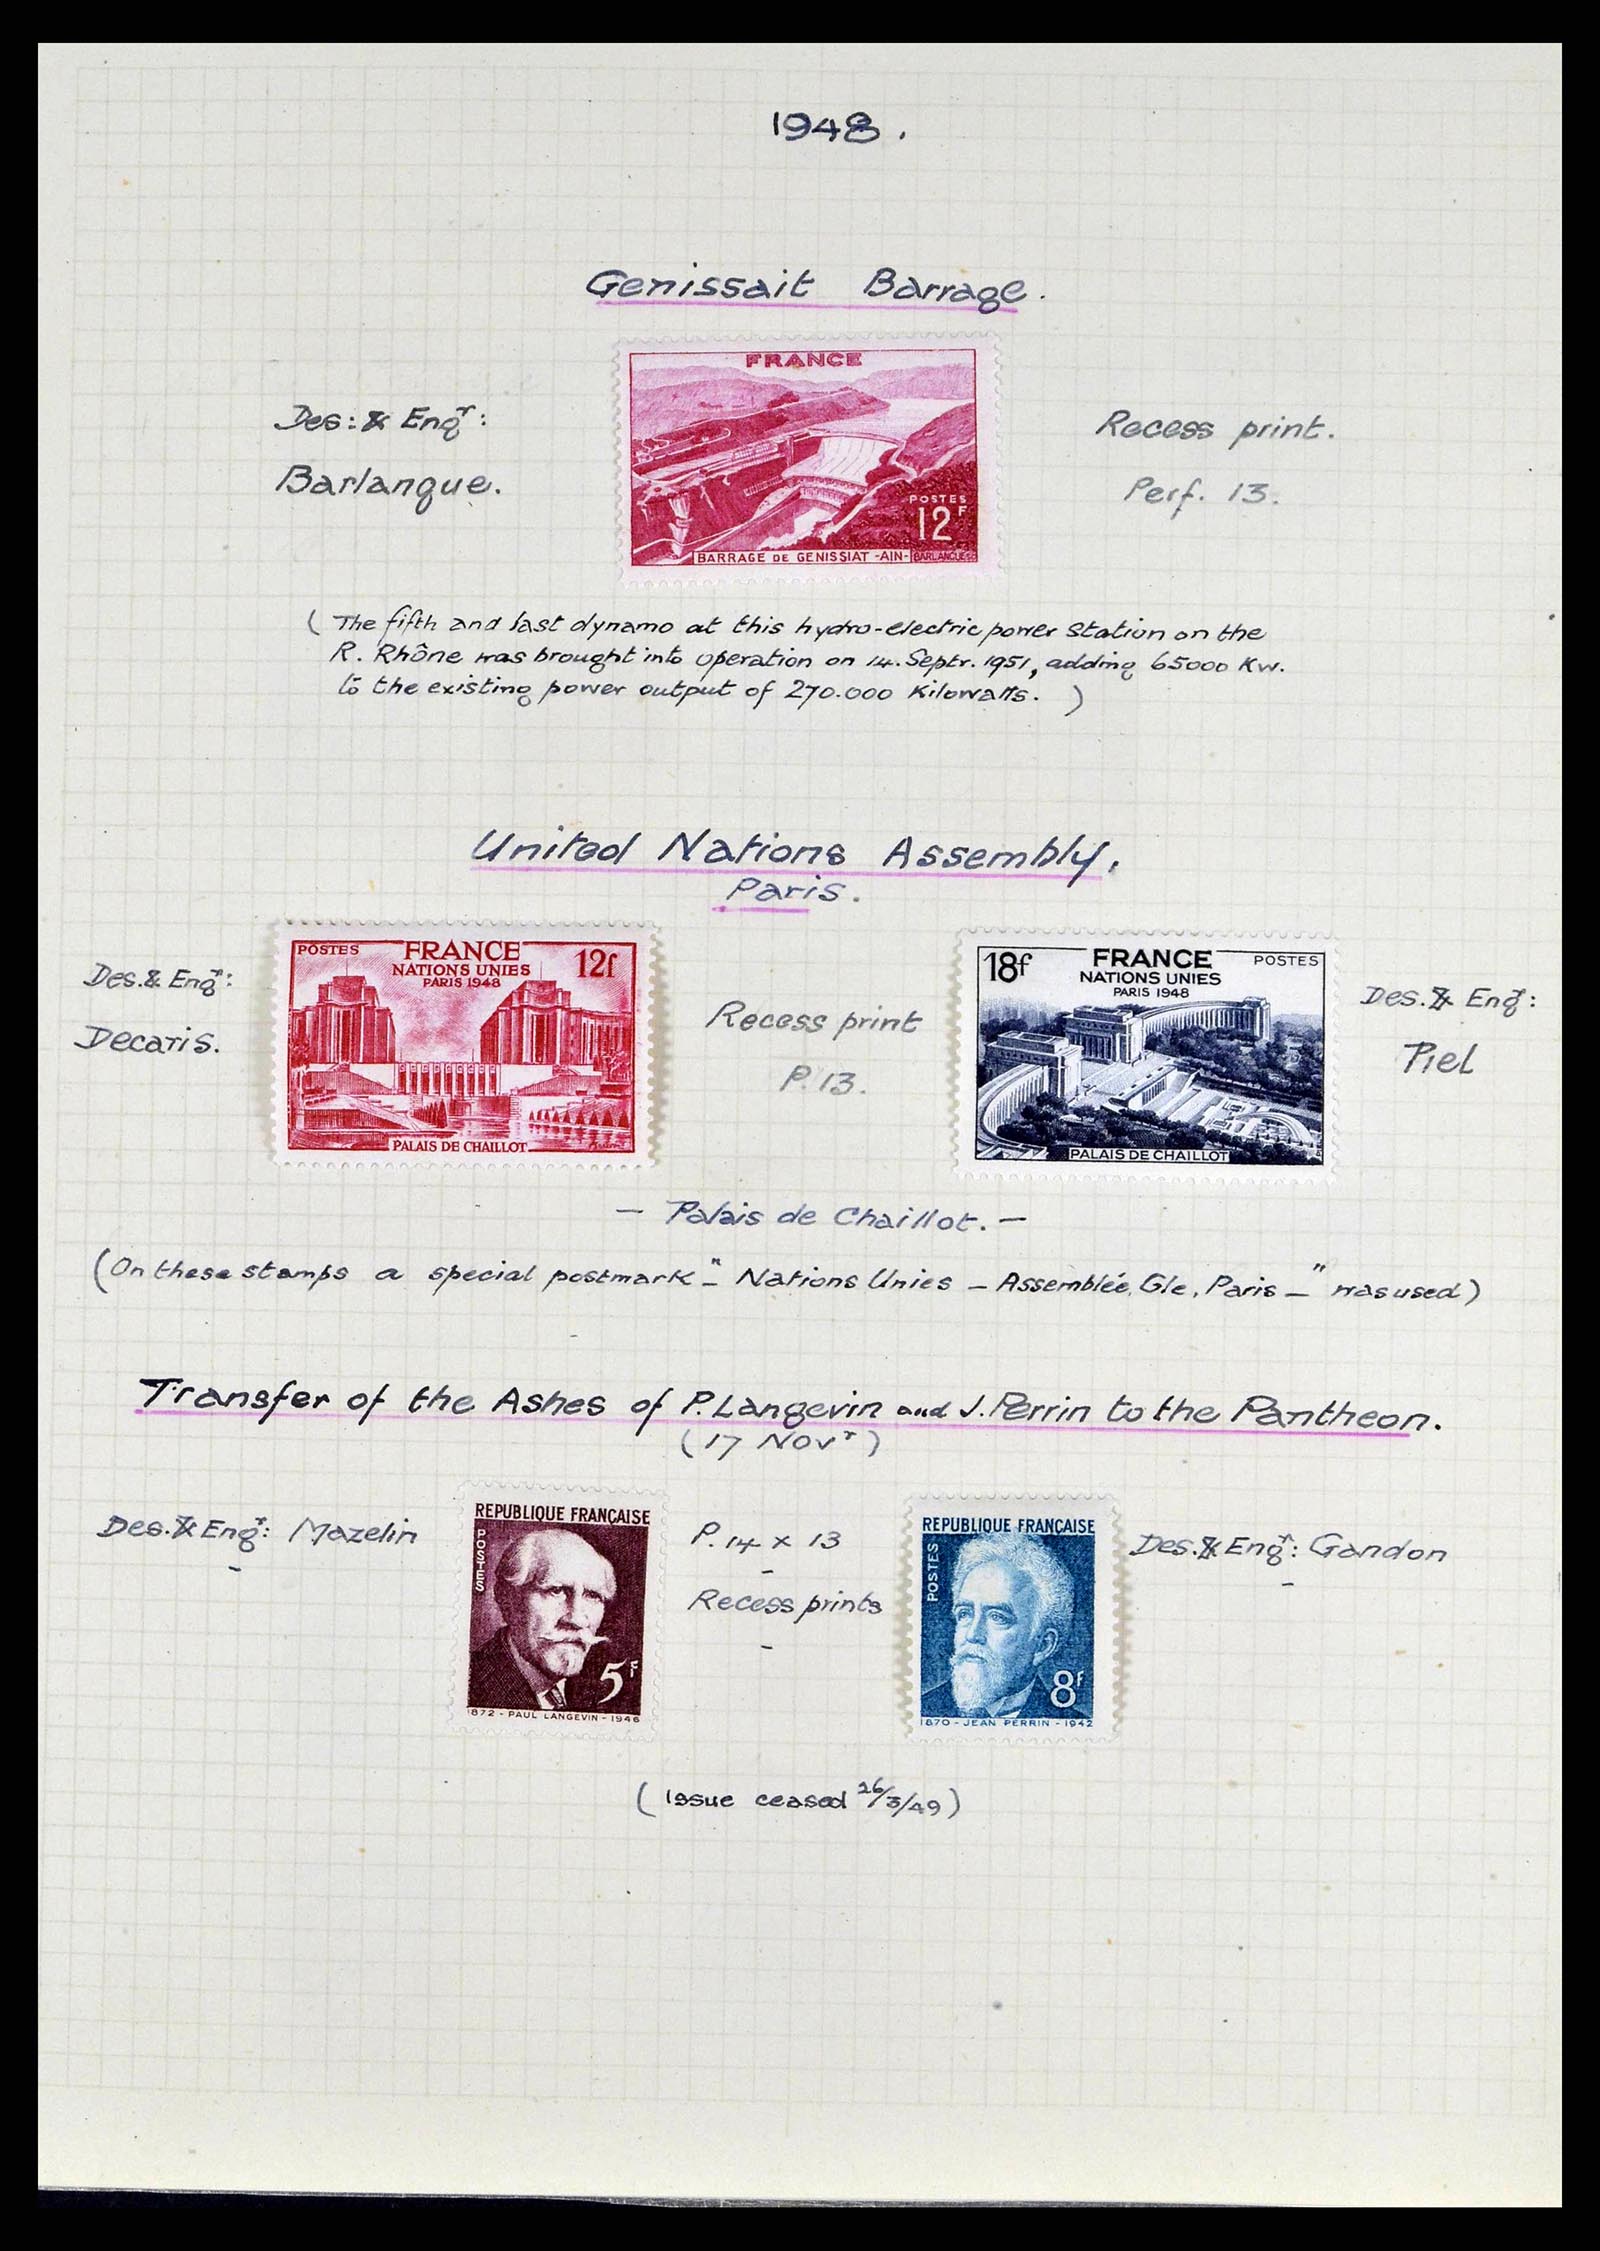 1948.
Genissait Barrage.
FRANCE
Des: & Engr:
Barlangue.
Recess print.
Perf. 13.
POSTES
12F
BARRAGE DE GENISSIAT -AIN-
BARLANGUE
( The fifth and last dynamo at this hydro-electric power station on the
R. Rhône was brought into operation on 14. Septr. 1951, adding 65000 Kw.
to the existing power output of 270.000 Kilowatts. )
United Nations Assembly,
Paris.
Des. & Engr:
Decaris.
POSTES
FRANCE
12f
NATIONS UNIES
PARIS 1948
PALAIS DE CHAILLOT
Recess print
P. 13.
18f
FRANCE
POSTES
NATIONS UNIES
PARIS 1948
PALAIS DE CHAILLOT
Des. & Engr:
Piel
— Palais de Chaillot. —
(On these stamps a special postmark "— Nations Unies — Assemblée, Gle, Paris —" was used)
Transfer of the Ashes of P. Langevin and J. Perrin to the Pantheon.
(17 Novr)
Des. & Engr: Mazelin
REPUBLIQUE FRANÇAISE
POSTES
5F
1872 - PAUL LANGEVIN - 1946
P. 14 x 13
Recess prints
REPUBLIQUE FRANÇAISE
POSTES
8f
1870 - JEAN PERRIN - 1942
Des. & Engr: Gandon
( Issue ceased 26/3/49 )